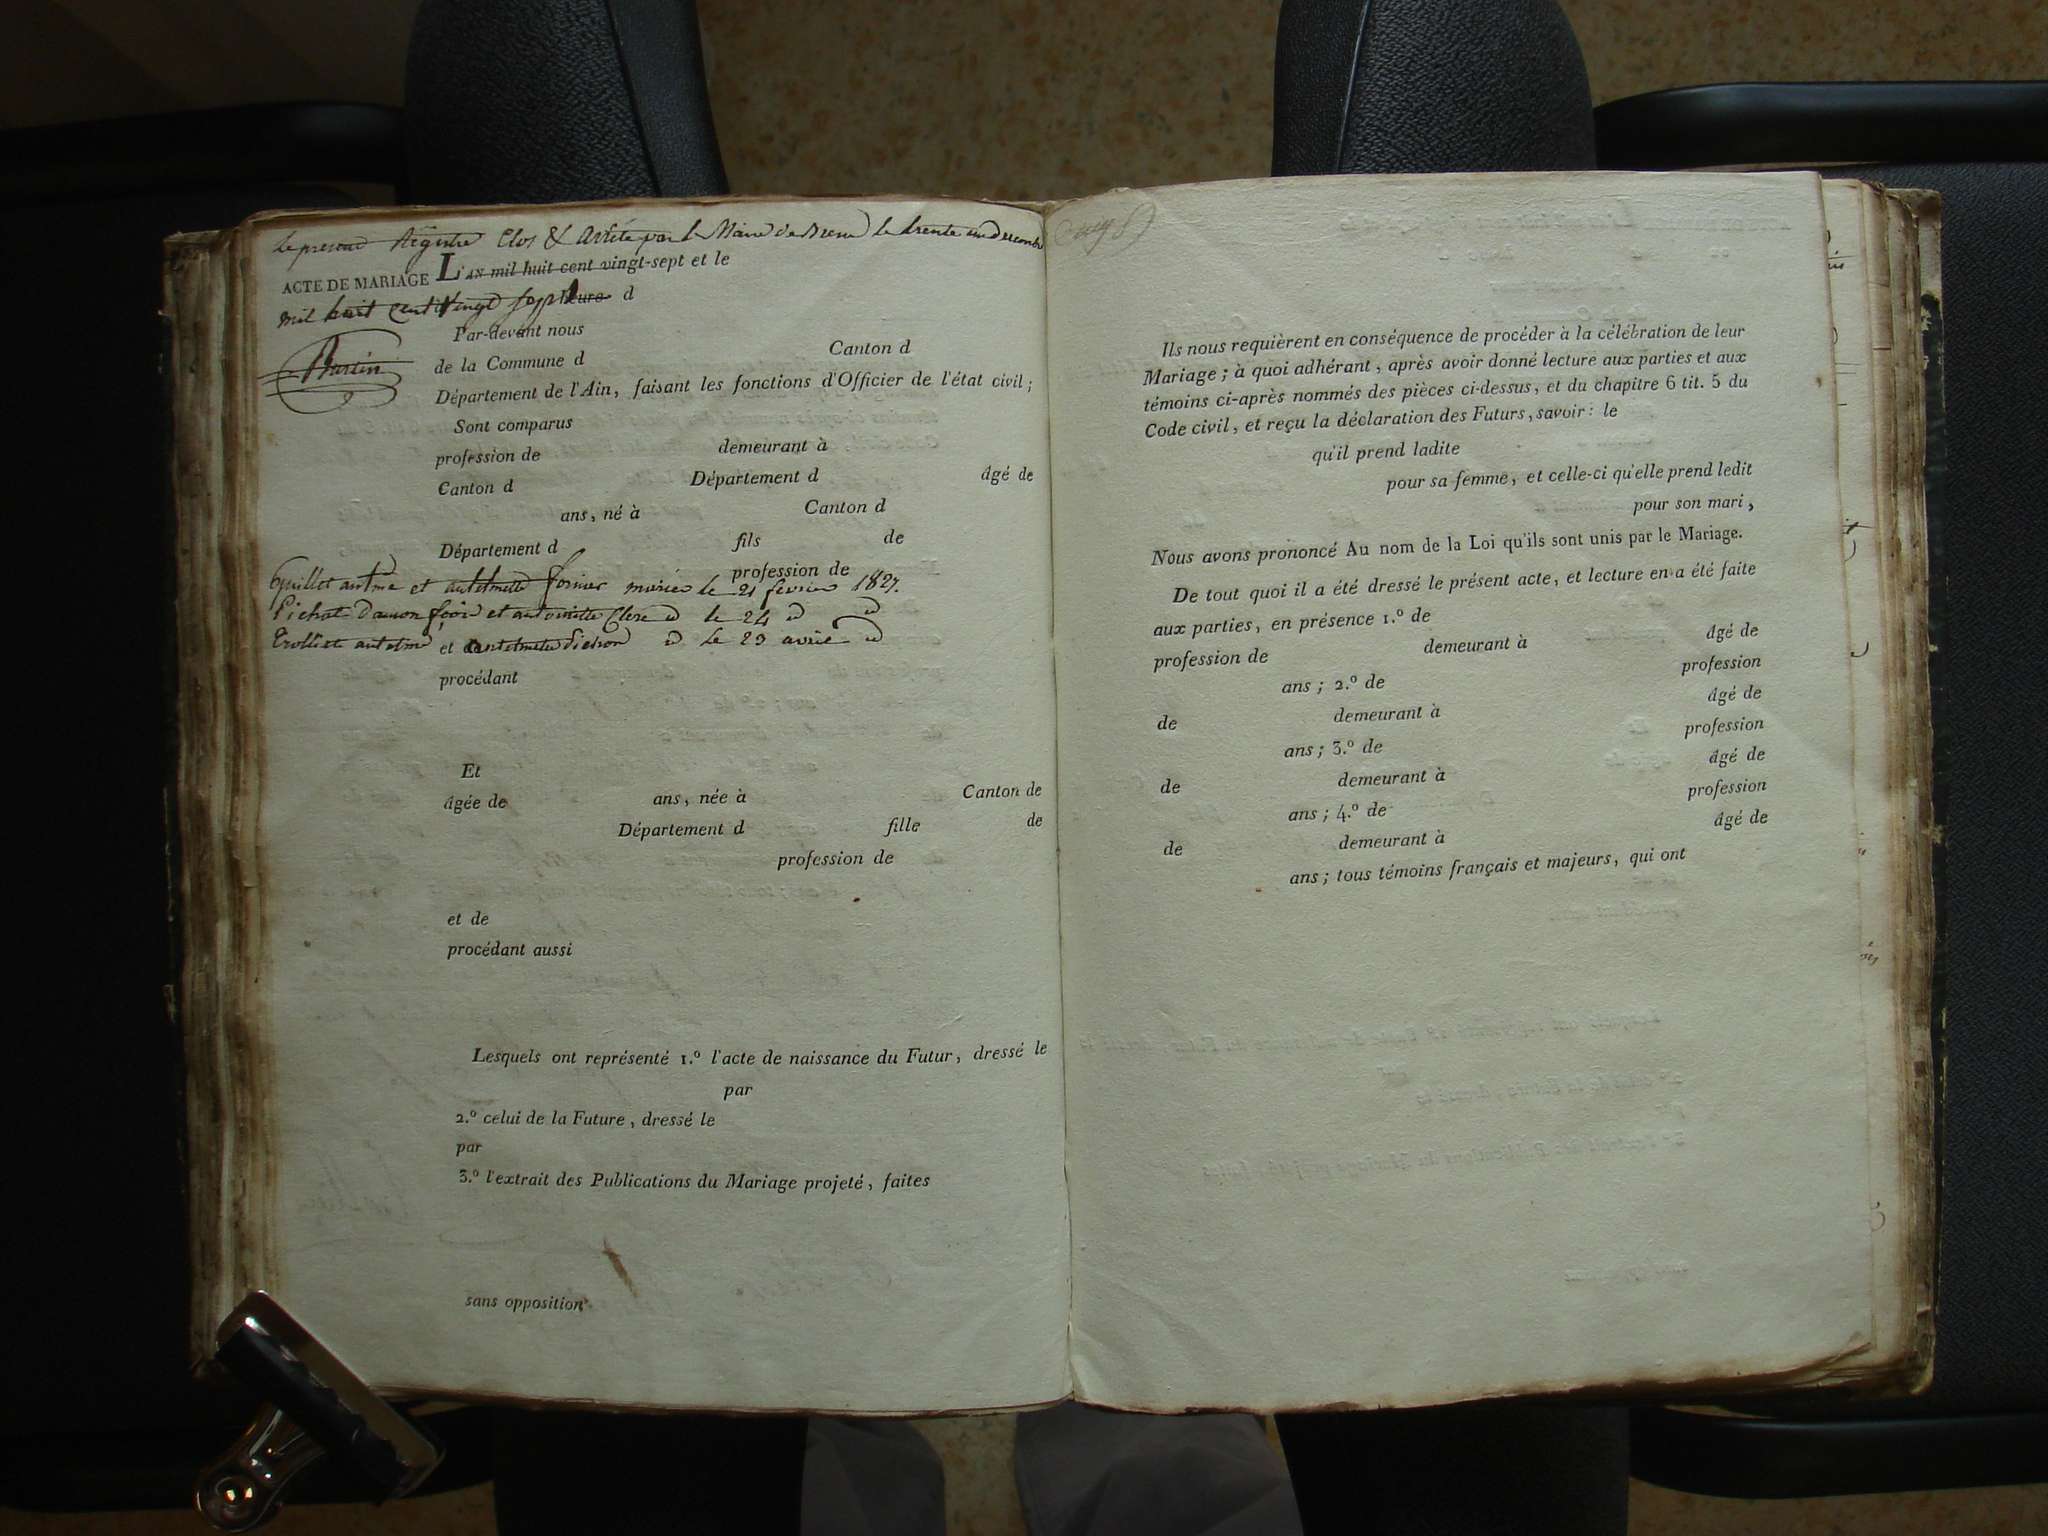 Le present Régistre Clos & Arrêté par le Maire de Brens le trente un decembre
ACTE DE MARIAGE L'AN mil huit cent vingt-sept et le
mil huit cent vingt sept heure d
Par-devant nous
de la Commune d Canton d
Département de l'Ain, faisant les fonctions d'Officier de l'état civil;
Sont comparus
profession de demeurant à
Canton d Département d âgé de
ans, né à Canton d
Département d fils de
profession de
Guillet antme et antelmette fornier mariés le 21 fevrier 1827.
Pichat et antoinette Clerc le 24
Trolliet antelme et antelmette Pichon Le 23 avril
procédant
Et
âgée de ans, née à Canton de
Département d fille de
profession de
et de
procédant aussi
Lesquels ont représenté 1.º l'acte de naissance du Futur, dressé le
par
2.º celui de la Future, dressé le
par
3.º l'extrait des Publications du Mariage projeté, faites
sans opposition
Ils nous requièrent en conséquence de procéder à la célébration de leur
Mariage; à quoi adhérant, après avoir donné lecture aux parties et aux
témoins ci-après nommés des pièces ci-dessus, et du chapitre 6 tit. 5 du
Code civil, et reçu la déclaration des Futurs, savoir: le
qu'il prend ladite
pour sa femme, et celle-ci qu'elle prend ledit
pour son mari,
Nous avons prononcé Au nom de la Loi qu'ils sont unis par le Mariage.
De tout quoi il a été dressé le présent acte, et lecture en a été faite
aux parties, en présence 1.º de
profession de demeurant à âgé de
ans; 2.º de profession
de demeurant à âgé de
ans; 3.º de profession
de demeurant à âgé de
ans; 4.º de profession
de demeurant à âgé de
ans; tous témoins français et majeurs, qui ont